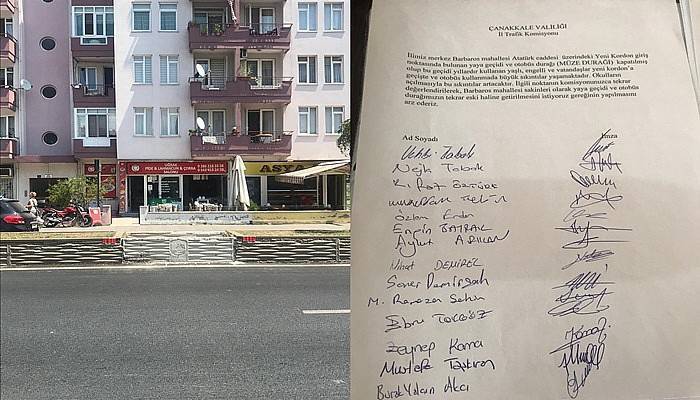 UĞRAK
PİDE & LAHMACUN & ÇORBA
SALONU
ASYA
ÇANAKKALE VALİLİĞİ
İl Trafik Komisyonu
İlimiz merkez Barbaros mahallesi Atatürk caddesi üzerindeki Yeni Kordon giriş
noktasında bulunan yaya geçidi ve otobüs durağı (MÜZE DURAĞI) kapatılmış
olup bu geçidi yıllardır kullanan yaşlı, engelli ve vatandaşlar yeni kordon'a
geçişte ve otobüs kullanımında büyük sıkıntılar yaşamaktadır. Okulların
açılmasıyla bu sıkıntılar artacaktır. İlgili noktanın komisyonunuzca tekrar
değerlendirilerek, Barbaros mahallesi sakinleri olarak yaya geçidi ve otobüs
durağımızın tekrar eski haline getirilmesini istiyoruz gereğinin yapılmasını
arz ederiz.
Ad Soyadı İmza
Tabak
Tabak
ÖZTÜRK
Özlem
Engin BAYRAK
Aykut ARIKAN
Nihat DEMİREL
Soner Demirsah
M. Ramazan Sahin
Ebru
Zeynep Kama
Mustafa Taşkıran
Burak Yalçın Akcı